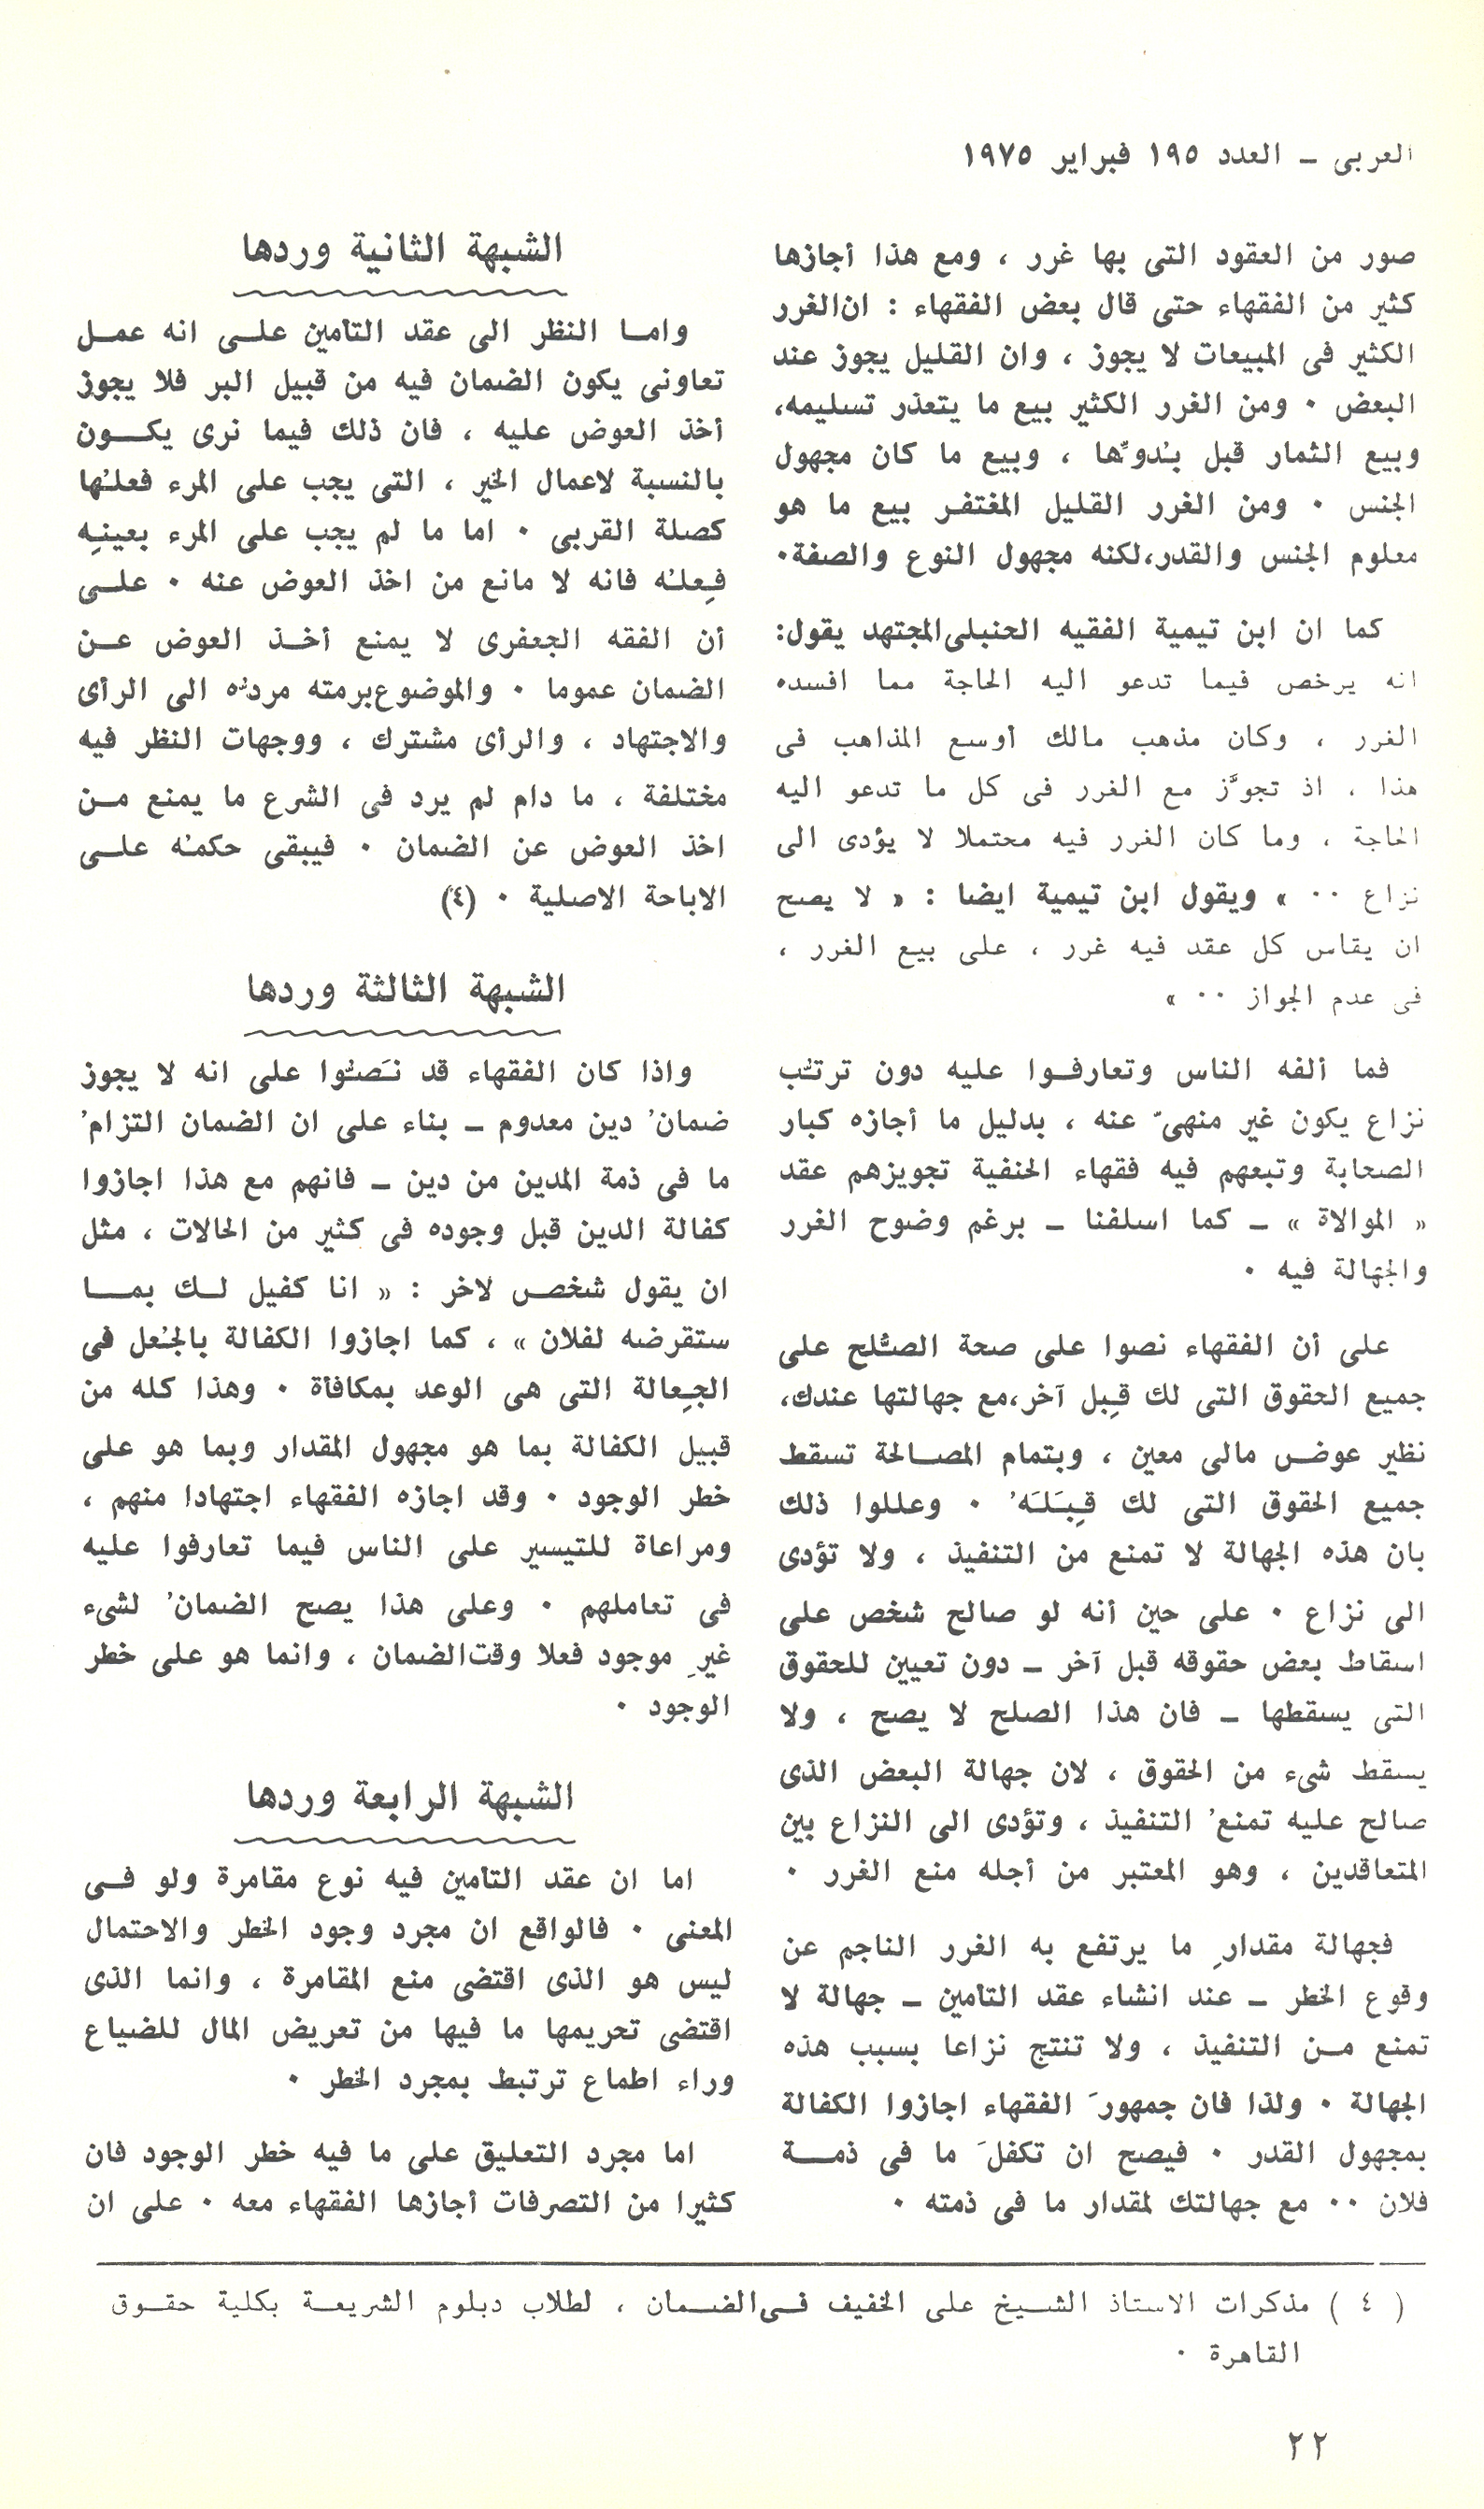 العربى – العدد ١٩٥ فبراير ١٩٧٥
صور من العقود التى بها غرر ، ومع هذا أجازها
كثير من الفقهاء حتى قال بعض الفقهاء : ان الغرر
الكثير فى المبيعات لا يجوز ، وان القليل يجوز عند
البعض ٠ ومن الغرر الكثير بيع ما يتعذر تسليمه،
وبيع الثمار قبل بُدوِّها ، وبيع ما كان مجهول
الجنس ٠ ومن الغرر القليل المغتفر بيع ما هو
معلوم الجنس والقدر،لكنه مجهول النوع والصفة٠
كما ان ابن تيمية الفقيه الحنبلى المجتهد يقول:
انه يرخص فيما تدعو اليه الحاجة مما افسده
الغرر ، وكان مذهب مالك أوسع المذاهب فى
هذا ، اذ تجوَّز مع الغرر فى كل ما تدعو اليه
الحاجة ، وما كان الغرر فيه محتملا لا يؤدى الى
نزاع ٠٠ » ويقول ابن تيمية ايضا : « لا يصح
ان يقاس كل عقد فيه غرر ، على بيع الغرر ،
فى عدم الجواز ٠٠ »
فما ألفه الناس وتعارفـوا عليه دون ترتُب
نزاع يكون غير منهىّ عنه ، بدليل ما أجازه كبار
الصحابة وتبعهم فيه فقهاء الحنفية تجويزهم عقد
« الموالاة » – كما اسلفنا – برغم وضوح الغرر
والجهالة فيه ٠
على أن الفقهاء نصوا على صحة الصُلح على
جميع الحقوق التى لك قِبل آخر،مع جهالتها عندك،
نظير عوض مالى معين ، وبتمام المصالحة تسقط
جميع الحقوق التى لك قِبَلَهُ ٠ وعللوا ذلك
بان هذه الجهالة لا تمنع من التنفيذ ، ولا تؤدى
الى نزاع ٠ على حين أنه لو صالح شخص على
اسقاط بعض حقوقه قبل آخر – دون تعيين للحقوق
التى يسقطها – فان هذا الصلح لا يصح ، ولا
يسقط شىء من الحقوق ، لان جهالة البعض الذى
صالح عليه تمنعُ التنفيذ ، وتؤدى الى النزاع بين
المتعاقدين ، وهو المعتبر من أجله منع الغرر ٠
فجهالة مقدارِ ما يرتفع به الغرر الناجم عن
وقوع الخطر – عند انشاء عقد التأمين – جهالة لا
تمنع مـن التنفيذ ، ولا تنتج نزاعا بسبب هذه
الجهالة ٠ ولذا فان جمهورَ الفقهاء اجازوا الكفالة
بمجهول القدر ٠ فيصح ان تكفلَ ما فى ذمـــة
فلان ٠٠ مع جهالتك لمقدار ما فى ذمته ٠
الشبهة الثانية وردها
وامـا النظر الى عقد التأمين علـى انه عمـل
تعاونى يكون الضمان فيه من قبيل البر فلا يجوز
أخذ العوض عليه ، فان ذلك فيما نرى يكـــون
بالنسبة لاعمال الخير ، التى يجب على المرء فعلُها
كصلة القربى ٠ اما ما لم يجب على المرء بعينِه
فِعلُه فانه لا مانع من اخذ العوض عنه ٠ علـى
أن الفقه الجعفرى لا يمنع أخـذ العوض عـن
الضمان عموما ٠ والموضوع برمته مردُّه الى الرأى
والاجتهاد ، والرأى مشترك ، ووجهات النظر فيه
مختلفة ، ما دام لم يرد فى الشرع ما يمنع مـن
اخذ العوض عن الضمان ٠ فيبقى حكمُه علـى
الاباحة الاصلية ٠ (٤)
الشبهة الثالثة وردها
واذا كان الفقهاء قد نَصُّوا على انه لا يجوز
ضمانُ دين معدوم – بناء على ان الضمان التزامُ
ما فى ذمة المدين من دين – فانهم مع هذا اجازوا
كفالة الدين قبل وجوده فى كثير من الحالات ، مثل
ان يقول شخص لاخر : « انا كفيل لـك بمــا
ستقرضه لفلان » ، كما اجازوا الكفالة بالجُعل فى
الجِعالة التى هى الوعد بمكافأة ٠ وهذا كله من
قبيل الكفالة بما هو مجهول المقدار وبما هو على
خطر الوجود ٠ وقد اجازه الفقهاء اجتهادا منهم ،
ومراعاة للتيسير على الناس فيما تعارفوا عليه
فى تعاملهم ٠ وعلى هذا يصح الضمانُ لشىء
غيرِ موجود فعلا وقت الضمان ، وانما هو على خطر
الوجود ٠
الشبهة الرابعة وردها
اما ان عقد التأمين فيه نوع مقامرة ولو فـى
المعنى ٠ فالواقع ان مجرد وجود الخطر والاحتمال
ليس هو الذى اقتضى منع المقامرة ، وانما الذى
اقتضى تحريمها ما فيها من تعريض المال للضياع
وراء اطماع ترتبط بمجرد الخطر ٠
اما مجرد التعليق على ما فيه خطر الوجود فان
كثيرا من التصرفات أجازها الفقهاء معه ٠ على ان
( ٤ ) مذكرات الاستاذ الشـيخ على الخفيف فـى الضـمان ، لطلاب دبلوم الشريعـة بكلية حقـوق
القاهرة ٠
٢٢